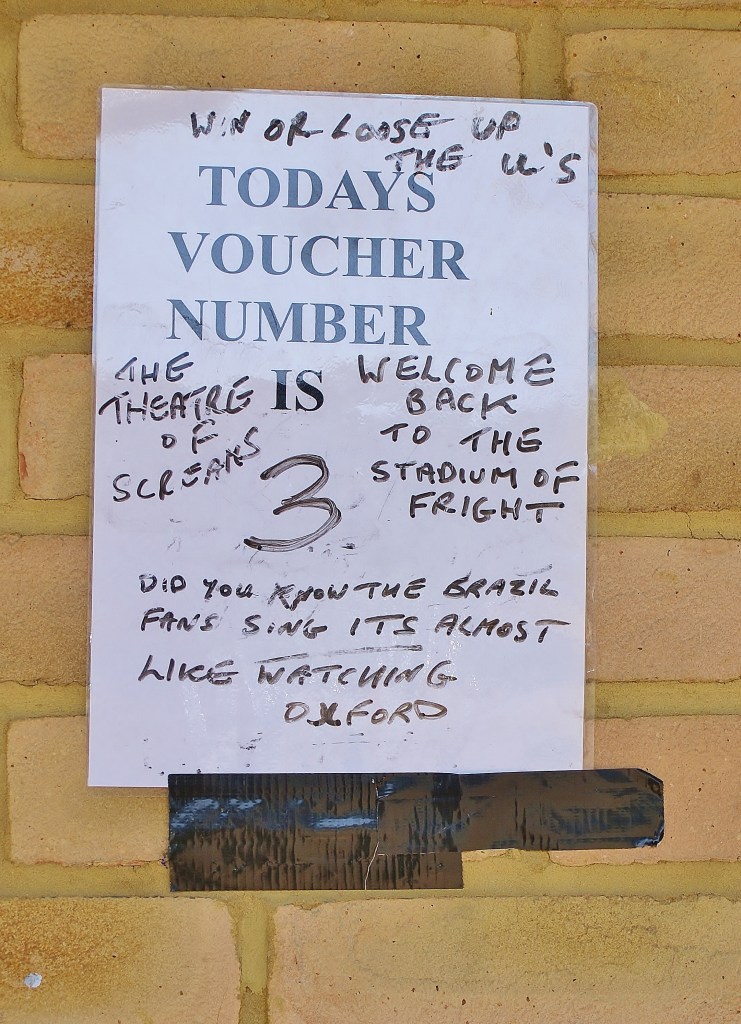 WIN OR LOOSE UP
THE U'S
TODAYS
VOUCHER
NUMBER
IS
THE
THEATRE
OF
SCREAMS
WELCOME
BACK
TO THE
STADIUM OF
FRIGHT
3
DID YOU KNOW THE BRAZIL
FANS SING ITS ALMOST
LIKE WATCHING
OXFORD